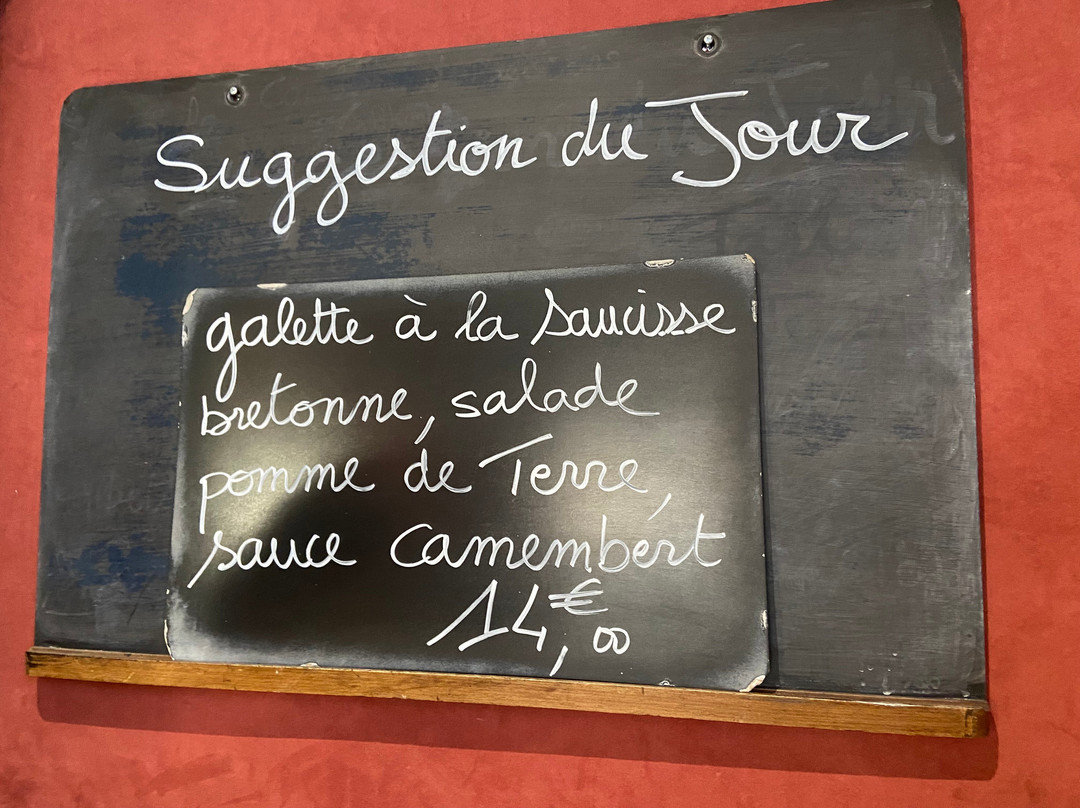 Suggestion du Jour
galette à la saucisse
bretonne, salade
pomme de Terre,
sauce Camembert
14,€00